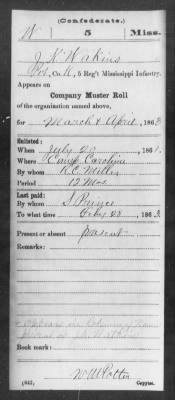 (Confederate.)
W 5 Miss.
J. K. Watkins
Pvt., Co. K, 5 Reg't Mississippi Infantry.
Appears on
Company Muster Roll
of the organization named above,
for March & April, 1863.
Enlisted:
When July 20, 1861.
Where Camp Carolina
By whom K. C. Miller
Period 12 Mos
Last paid:
By whom S. Prince
To what time Feby 28, 1863.
Present or absent present
Remarks:
Book mark:
W. W. Potter
(642) Copyist.